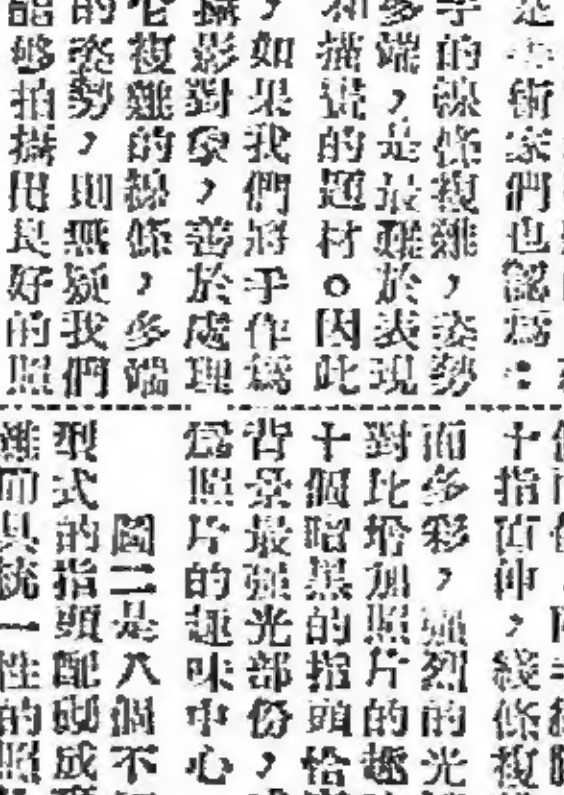 術家們也認爲：
手的線條複雜，姿勢
多端，是最難於表現
和描畫的題材。因此
，如果我們將手作爲
攝影對象，善於處理
它複雜的線條，多端
的姿勢，則無疑我們
能够拍攝出良好的照
十指直伸，綫條複
而多彩，強烈的光
對比增加照片的趣
十個暗黑的指頭恰
背景最強光部份，
爲照片的趣味中心
圖二是八個不
型式的指頭配砌成
雜而具統一性的照